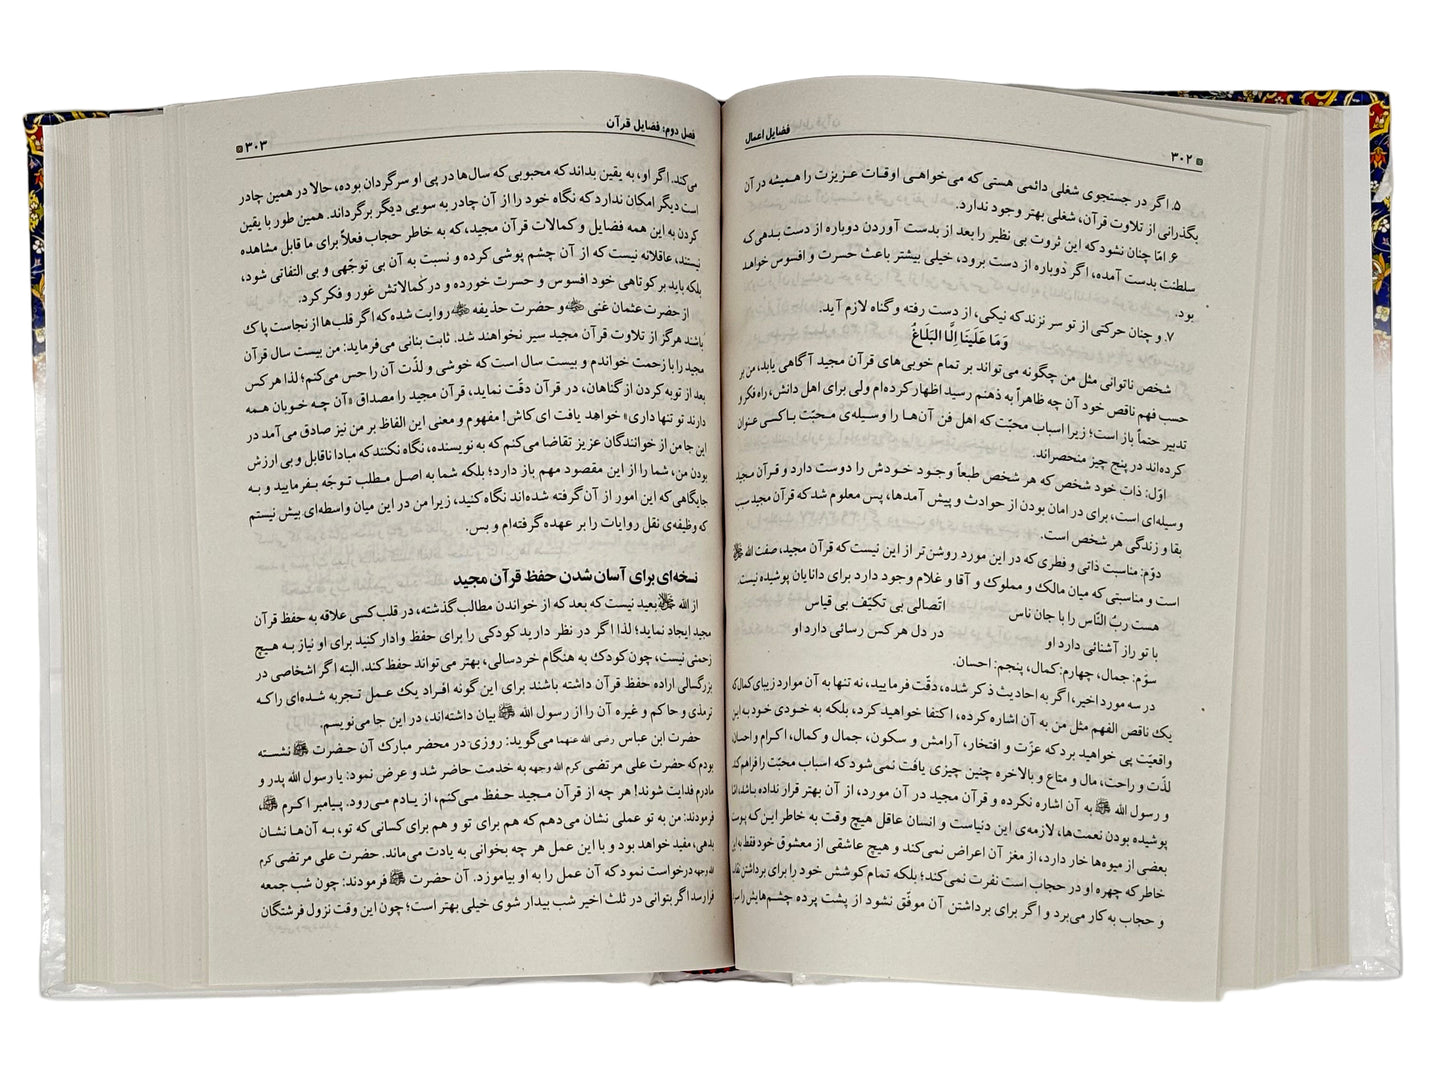 ۳۰۲ فضایل اعمال
۵. اگر در جستجوی شغلی دائمی هستی که می‌خواهی اوقات عزیزت را همیشه در آن
بگذرانی از تلاوت قرآن، شغلی بهتر وجود ندارد.
۶. امّا چنان نشود که این ثروت بی نظیر را بعد از بدست آوردن دوباره از دست بدهی که
سلطنت بدست آمده، اگر دوباره از دست برود، خیلی بیشتر باعث حسرت و افسوس خواهد
بود.
۷. و چنان حرکتی از تو سر نزند که نیکی، از دست رفته و گناه لازم آید.
وَمَا عَلَینَا اِلَّا البَلَاغُ
شخص ناتوانی مثل من چگونه می‌تواند بر تمام خوبی‌های قرآن مجید آگاهی یابد، من بر
حسب فهم ناقص خود آن چه ظاهراً به ذهنم رسید اظهار کرده‌ام ولی برای اهل دانش، راه فکر و
تدبیر حتماً باز است؛ زیرا اسباب محبّت که اهل فن آن‌ها را وسیله‌ی محبّت با کسی عنوان
کرده‌اند در پنج چیز منحصراند.
اوّل: ذات خود شخص که هر شخص طبعاً وجود خودش را دوست دارد و قرآن مجید
وسیله‌ای است، برای در امان بودن از حوادث و پیش آمدها، پس معلوم شد که قرآن مجید سبب
بقا و زندگی هر شخص است.
دوّم: مناسبت ذاتی و فطری که در این مورد روشن‌تر از این نیست که قرآن مجید، صفت الله ﷻ
است و مناسبتی که میان مالک و مملوک و آقا و غلام وجود دارد برای دانایان پوشیده نیست.
هست ربُ النّاس را با جان ناس اتّصالی بی تکیّف بی قیاس
با تو راز آشنائی دارد او در دل هر کس رسائی دارد او
سوّم: جمال، چهارم: کمال، پنجم: احسان.
در سه مورد اخیر، اگر به احادیث ذکر شده، دقّت فرمایید، نه تنها به آن موارد زیبای کمال که
یک ناقص الفهم مثل من به آن اشاره کرده، اکتفا خواهید کرد، بلکه به خودی خود به این
واقعیّت پی خواهید برد که عزّت و افتخار، آرامش و سکون، جمال و کمال، اکرام و احسان
لذّت و راحت، مال و متاع و بالاخره چنین چیزی یافت نمی‌شود که اسباب محبّت را فراهم کند
و رسول الله ﷺ به آن اشاره نکرده و قرآن مجید در آن مورد، از آن بهتر قرار نداده باشد، امّا
پوشیده بودن نعمت‌ها، لازمه‌ی این دنیاست و انسان عاقل هیچ وقت به خاطر این‌که پوست
بعضی از میوه‌ها خار دارد، از مغز آن اعراض نمی‌کند و هیچ عاشقی از معشوق خود فقط به این
خاطر که چهره او در حجاب است نفرت نمی‌کند؛ بلکه تمام کوشش خود را برای برداشتن
و حجاب به کار می‌برد و اگر برای برداشتن آن موفّق نشود از پشت پرده چشم‌هایش را
فصل دوم: فضایل قرآن ۳۰۳
می‌کند. اگر او، به یقین بداند که محبوبی که سال‌ها در پی او سرگردان بوده، حالا در همین چادر
است دیگر امکان ندارد که نگاه خود را از آن چادر به سویی دیگر برگرداند. همین طور با یقین
کردن به این همه فضایل و کمالات قرآن مجید، که به خاطر حجاب فعلاً برای ما قابل مشاهده
نیستند، عاقلانه نیست که از آن چشم پوشی کرده و نسبت به آن بی توجّهی و بی التفاتی شود،
بلکه باید بر کوتاهی خود افسوس و حسرت خورده و در کمالاتش غور و فکر کرد.
از حضرت عثمان غنی و حضرت حذیفه روایت شده که اگر قلب‌ها از نجاست پاک
باشند هرگز از تلاوت قرآن مجید سیر نخواهند شد. ثابت بنانی می‌فرماید: من بیست سال قرآن
مجید را با زحمت خواندم و بیست سال است که خوشی و لذّت آن را حس می‌کنم؛ لذا هر کس
بعد از توبه کردن از گناهان، در قرآن دقّت نماید، قرآن مجید را مصداق «آن چه خوبان همه
دارند تو تنها داری» خواهد یافت ای کاش! مفهوم و معنی این الفاظ بر من نیز صادق می‌آمد در
این جا من از خوانندگان عزیز تقاضا می‌کنم که به نویسنده، نگاه نکنند که مبادا ناقابل و بی ارزش
بودن من، شما را از این مقصود مهم باز دارد؛ بلکه شما به اصل مطلب توجّه بفرمایید و به
جایگاهی که این امور از آن گرفته شده‌اند نگاه کنید، زیرا من در این میان واسطه‌ای بیش نیستم
که وظیفه‌ی نقل روایات را بر عهده گرفته‌ام و بس.
نسخه‌ای برای آسان شدن حفظ قرآن مجید
از الله ﷻ بعید نیست که بعد که از خواندن مطالب گذشته، در قلب کسی علاقه به حفظ قرآن
مجید ایجاد نماید؛ لذا اگر در نظر دارید کودکی را برای حفظ وادار کنید برای او نیاز به هیچ
زحمتی نیست، چون کودک به هنگام خردسالی، بهتر می‌تواند حفظ کند. البته اگر اشخاصی در
بزرگسالی اراده حفظ قرآن داشته باشند برای این گونه افراد یک عمل تجربه شده‌ای را که
ترمذی و حاکم و غیره آن را از رسول الله ﷺ بیان داشته‌اند، در این جا می‌نویسم.
حضرت ابن عباس رضی الله عنهما می‌گوید: روزی در محضر مبارک آن حضرت ﷺ نشسته
بودم که حضرت علی مرتضی کرم الله وجهه به خدمت حاضر شد و عرض نمود: یا رسول الله پدر و
مادرم فدایت شوند! هر چه از قرآن مجید حفظ می‌کنم، از یادم می‌رود. پیامبر اکرم ﷺ
فرمودند: من به تو عملی نشان می‌دهم که هم برای تو و هم برای کسانی که تو، به آن‌ها نشان
بدهی، مفید خواهد بود و با این عمل هر چه بخوانی به یادت می‌ماند. حضرت علی مرتضی کرم
الله وجهه درخواست نمود که آن عمل را به او بیاموزد. آن حضرت ﷺ فرمودند: چون شب جمعه
فرا رسد اگر بتوانی در ثلث اخیر شب بیدار شوی خیلی بهتر است؛ چون این وقت نزول فرشتگان